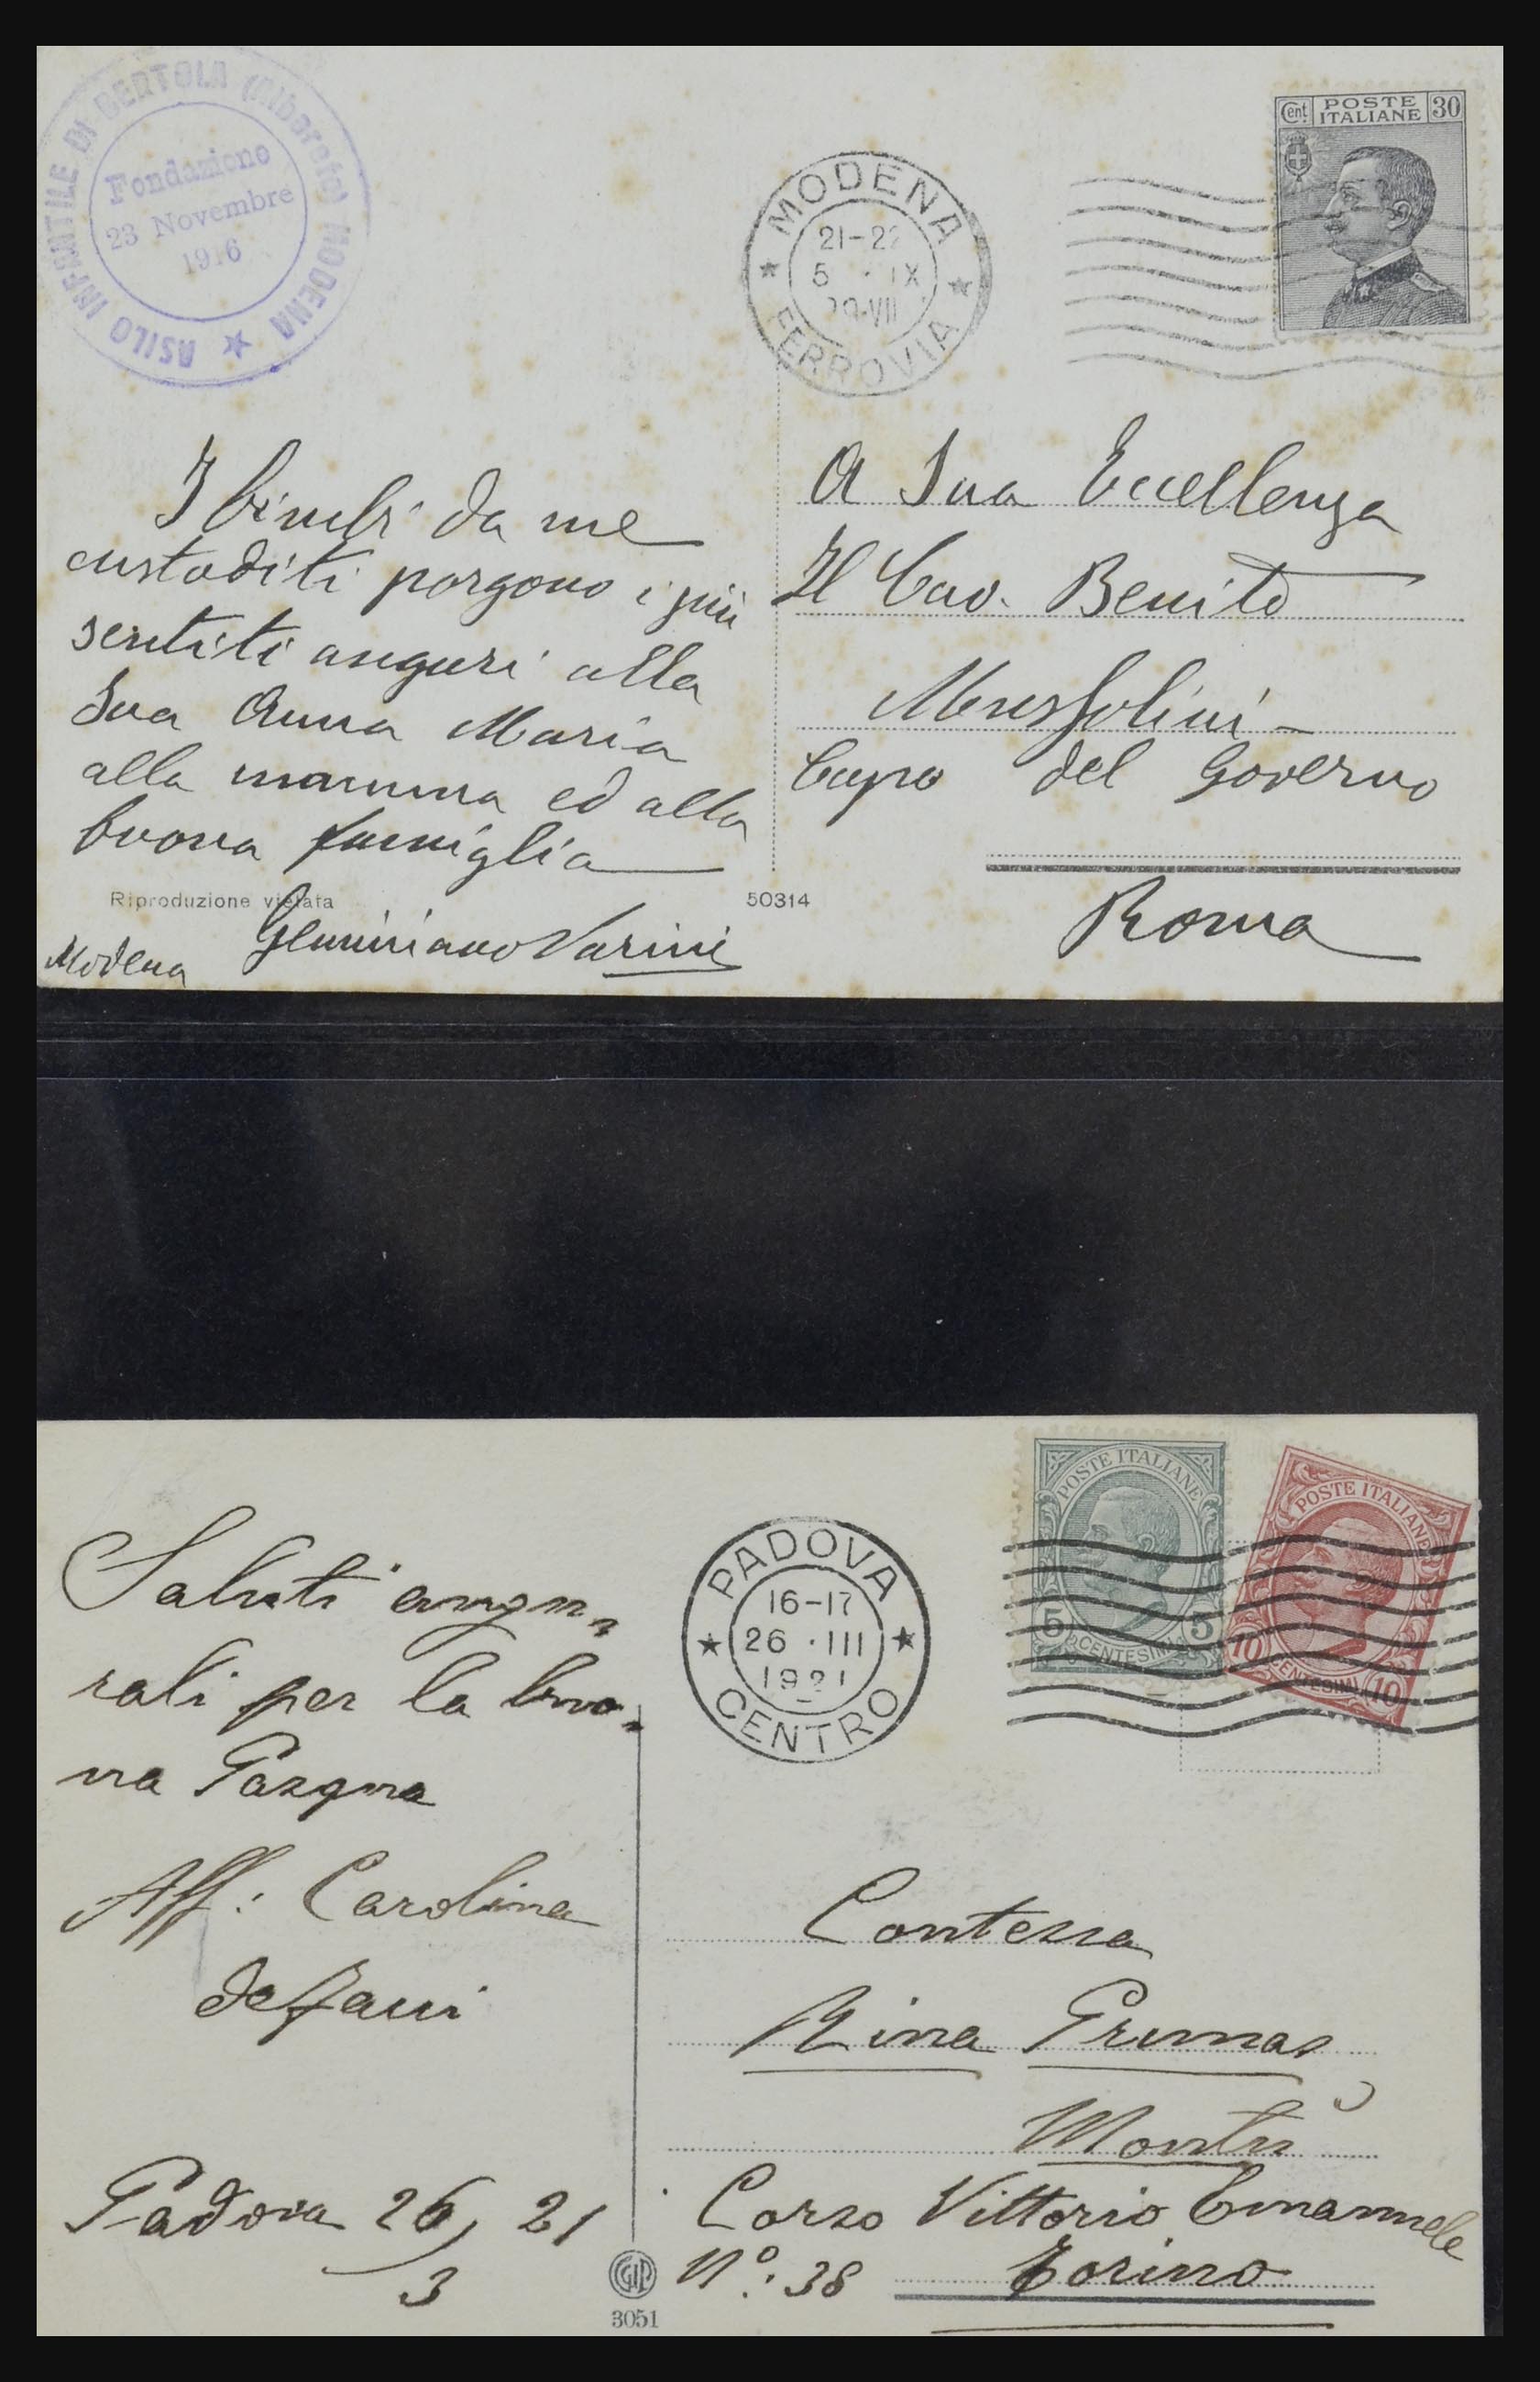 ASILO INFANTILE DI BERTOLA (Albareto) MODENA
Fondazione
23 Novembre
1916
MODENA
21-22
5 · IX
29-VII
FERROVIA
Cent. POSTE ITALIANE 30
I bimbi da me
custoditi porgono i più
sentiti auguri alla
Sua Anna Maria
alla mamma ed alla
buona famiglia
Geminiano Varini
Modena
Riproduzione vietata
50314
A Sua Eccellenza
Il Cav. Benito
Mussolini
Capo del Governo
Roma
POSTE ITALIANE
5 CENTESIMI 5
POSTE ITALIANE
10 CENTESIMI 10
PADOVA
16-17
26 · III
1921
CENTRO
Saluti augu-
rali per la buo-
na Pasqua
Aff: Carolina
Padova 26, 21
3
Contessa
Nina
Montù
Corso Vittorio Emanuele
N°: 38 Torino
GIP
3051